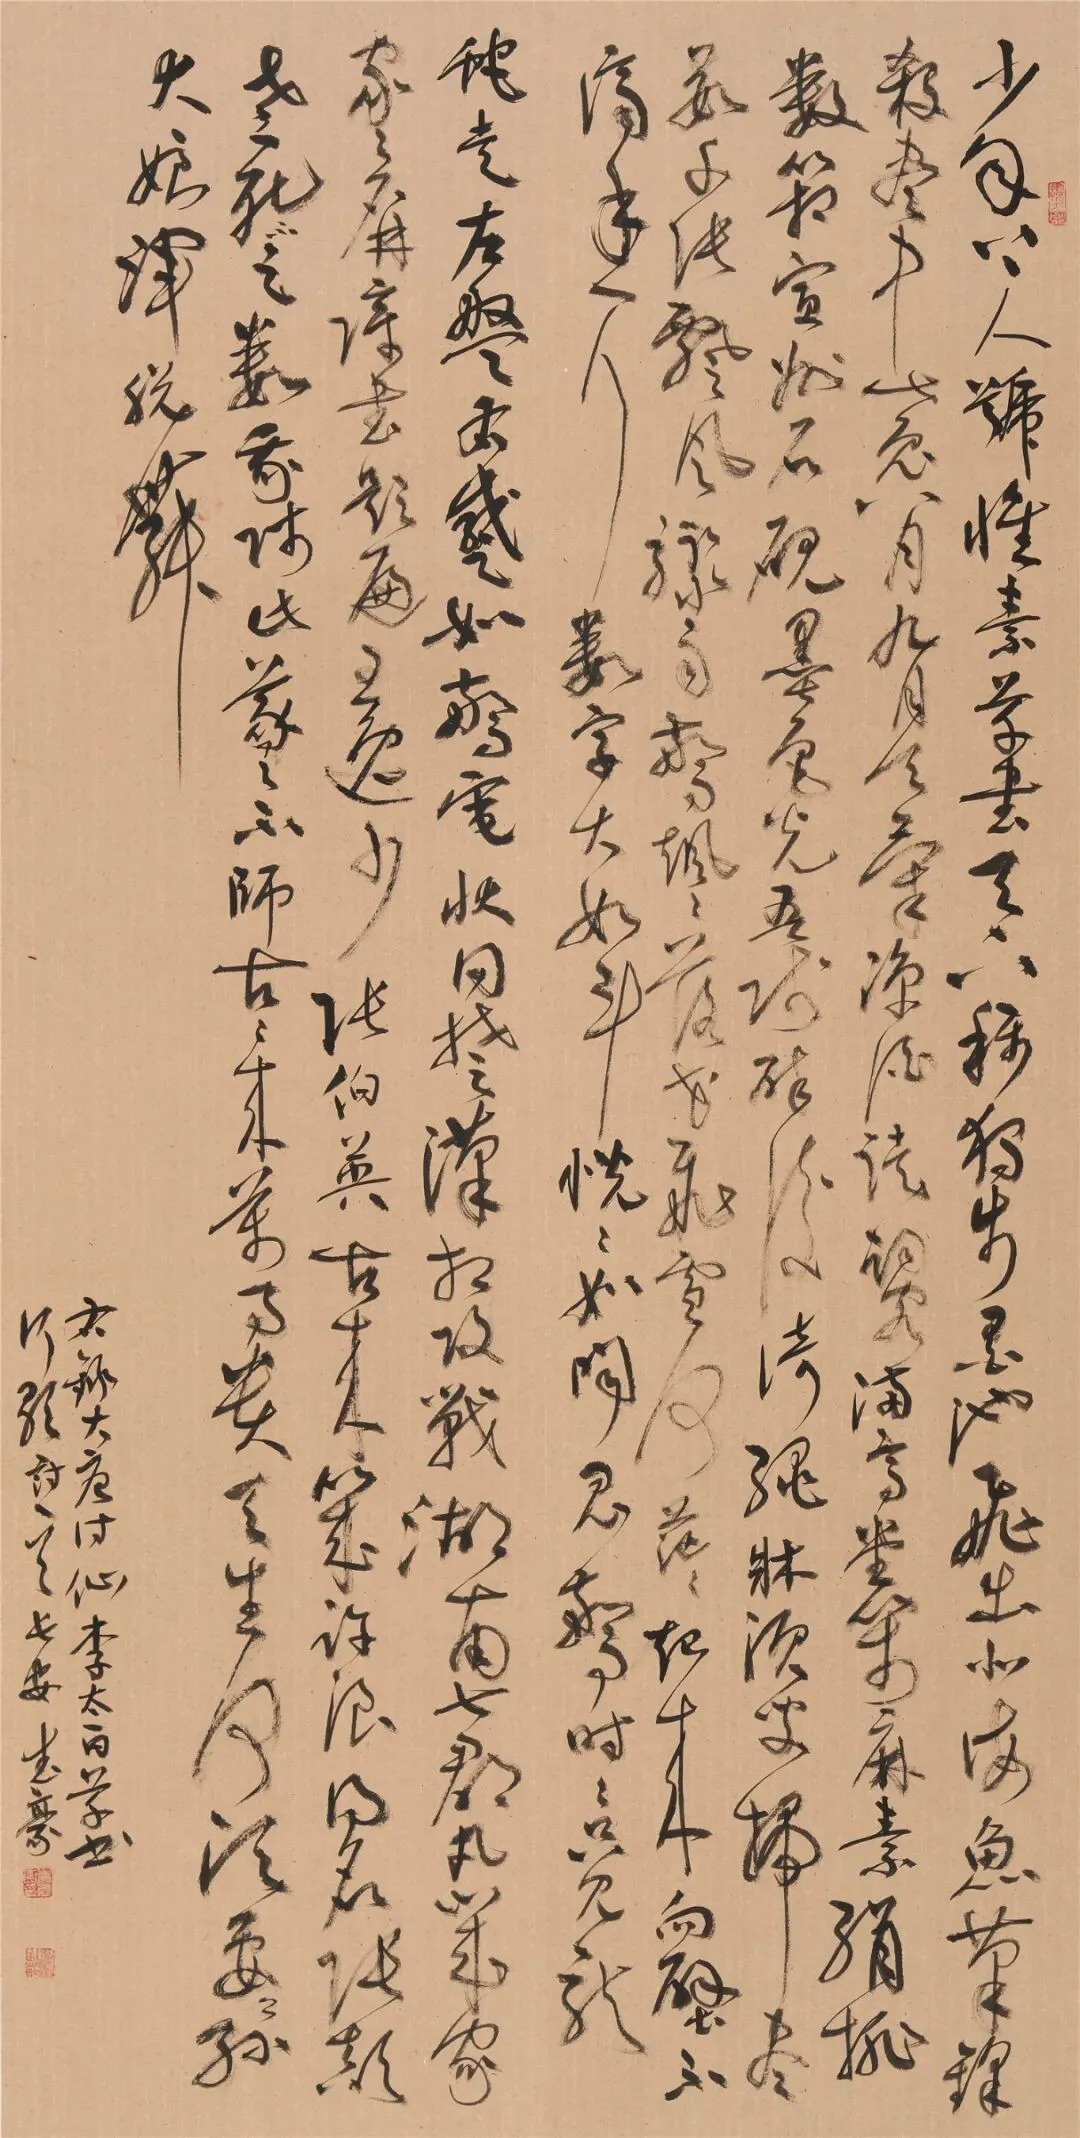 少年上人號懷素草書天下稱獨步墨池飛出北海魚筆鋒
殺盡中山兔八月九月天氣涼酒徒詞客滿高堂箋麻素絹排
數箱宣州石硯墨色光吾師醉後倚繩牀須臾掃盡
數千張飄風驟雨驚颯颯落花飛雪何茫茫起來向壁不
停手一行數字大如斗恍恍如聞鬼驚時時只見龍
蛇走左盤右蹙如驚電狀同楚漢相攻戰湖南七郡凡幾家
家家屏障書題遍王逸少張伯英古來幾許浪得名張顛
老死不足數我師此義不師古古來萬事貴天生何須要公孫
大娘渾脫舞
右錄大唐詩仙李太白草書
行歌詩一首長安豪